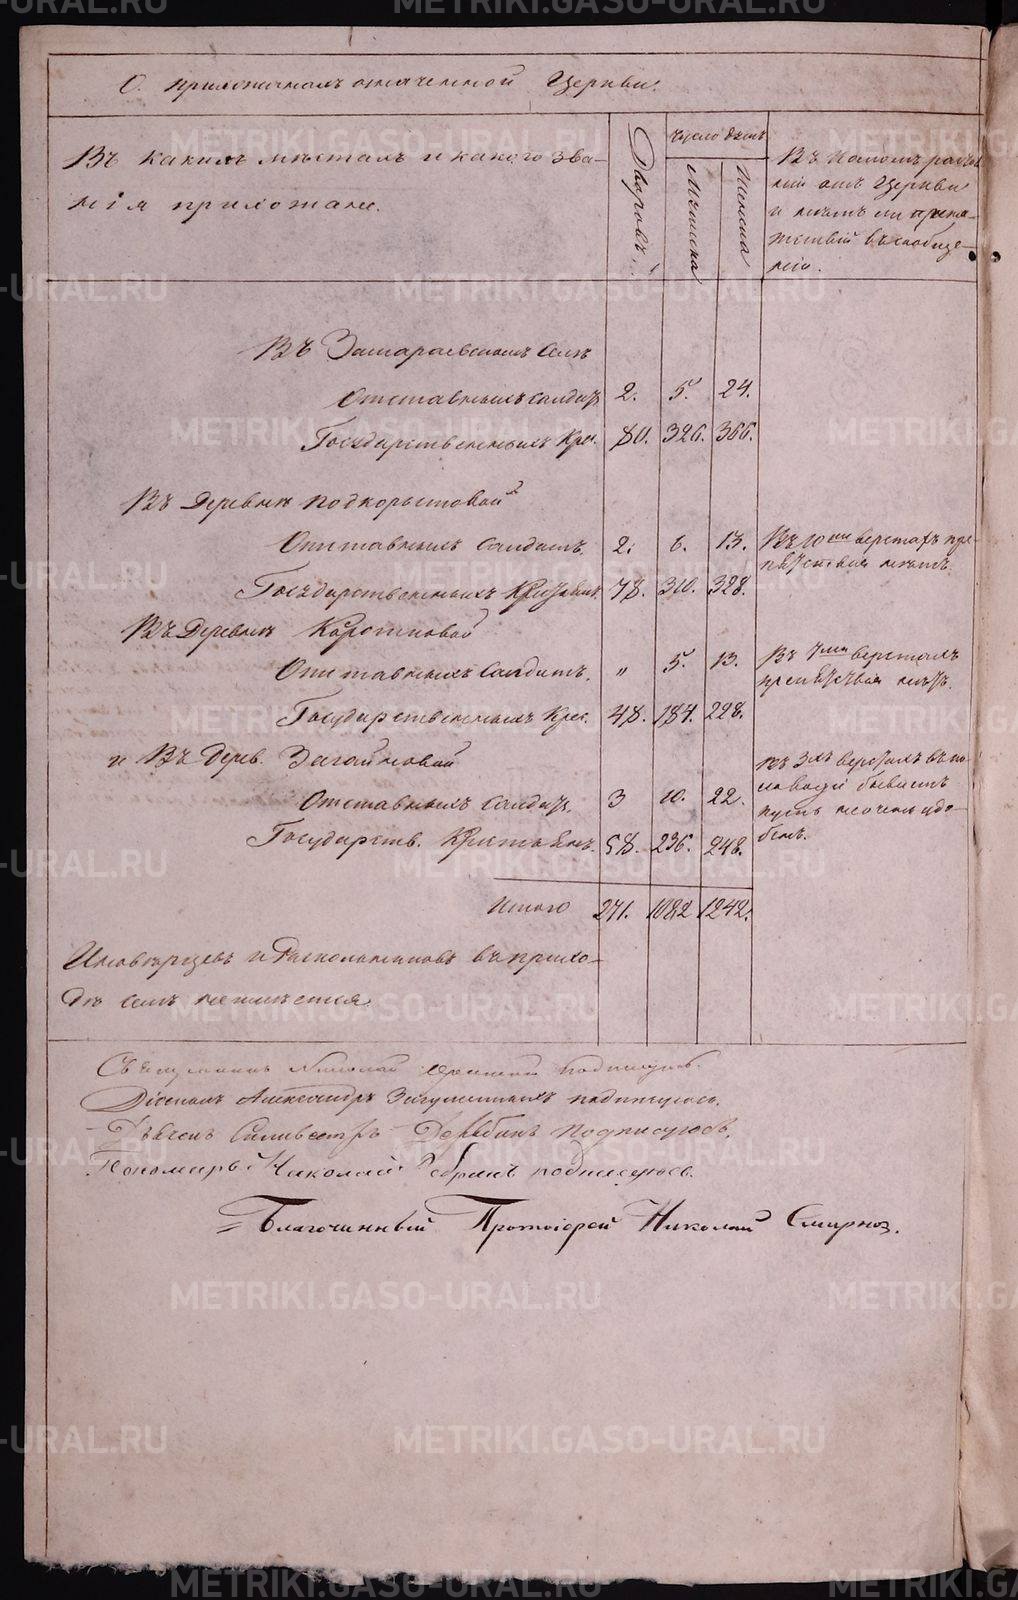 О прихожанахъ означенной Церкви.
Въ какихъ мѣстахъ и какого зва-
нія прихожане.
Дворовъ.
Число душъ
Мужеска
Женска
Въ какомъ разстоя-
ніи отъ Церкви
и нѣтъ ли препя-
тствій въ сообще-
ніи.
Въ Замараевскомъ селѣ
Отставныхъ солдатъ 2. 5. 24.
Государственныхъ Крес. 80. 326. 366.
Въ Деревнѣ Подкорытовой
Отставныхъ солдатъ 2. 6. 13. Въ 10ти верстахъ пре-
пятствія нѣтъ.
Государственныхъ Крестьянъ 78. 310. 328.
Въ Деревнѣ Коротковой
Отставныхъ солдатъ. " 5. 13. Въ 7ми верстахъ
препятствія нѣтъ.
Государственныхъ Крес. 48. 184. 228.
и Въ Дерев. Загайновой
Отставныхъ солдат. 3 10. 22.
Въ 3хъ верстахъ въ по-
ловодіе бываетъ
путь не очень удо-
бенъ.
Государств. Крестьянъ. 58. 236. 248.
Итого 271. 1082 1242.
Иновѣрцевъ и Раскольниковъ въ прихо-
дѣ семъ не имѣется.
Священникъ Николай подписуюсь.
Діаконъ Александръ подписуюсь.
Дьячокъ Сильвестръ Дерябинъ подписуюсь.
Пономарь Николай подписуюсь.
Благочинный Протоіерей Николай Смирнов.
METRIKI.GASO-URAL.RU